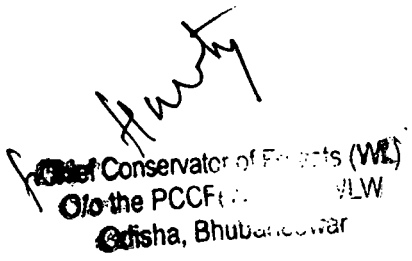 Chief Conservator of Forests (WL)
O/o the PCCF( VLW
Odisha, Bhubaneswar